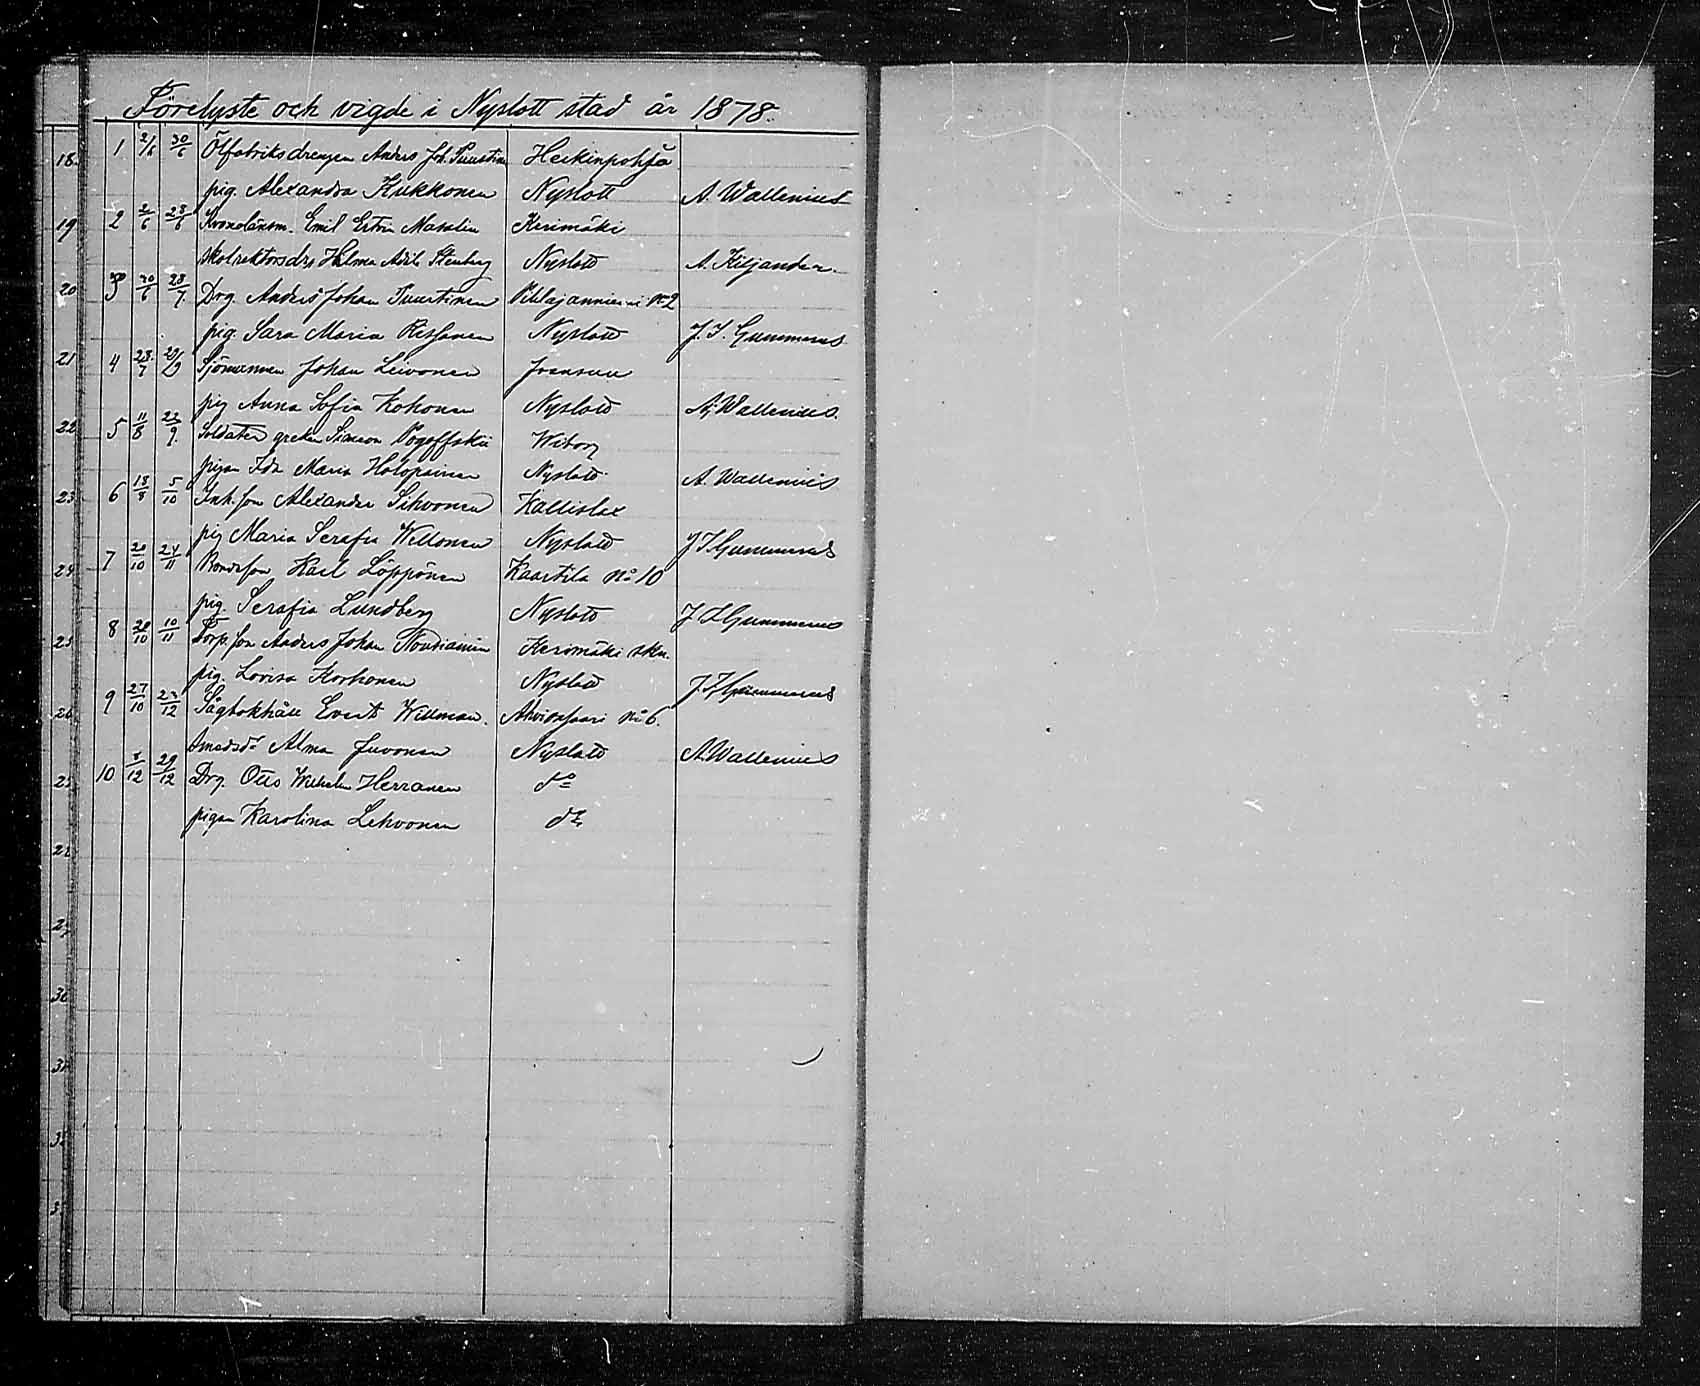 Förelyste och vigde i Nyslott stad år 1878.
18. 1 2/6 30/6 Ölfabriksdrengen Anders Joh. Puustinen Heikinpohja
pig. Alexandra Kukkonen Nyslott A. Wallenius
19 2 2/6 28/6 Kronolänsm. Emil Edvin Masalin Kerimäki
skolrektorsdr. Hilma Adele Stenberg Nyslott A. Kiljander.
20 3 30/6 28/7. Drg. Anders Johan Puustinen Pihlajanniemi No 2
pig. Sara Maria Nyslott J. I. Gummerus
21 4 28/7 29/9 Sjömannen Johan Leivonen Joensuu
pig Anna Sofia Kokonen Nyslott A. Wallenius.
22 5 11/8 22/9. Soldaten greken Simeon Pogoffskii Wiborg
pigan Ida Maria Holopainen Nyslott A. Wallenius
23 6 18/8 5/10 Inh. son Alexander Sihvonen Kallislax
pig Maria Serafia Willonen Nyslott J I Gummerus
24 7 20/10 24/11 Bondeson Karl Löppönen Kaartila No 10
pig. Serafia Lundberg Nyslott J I Gummerus
25 8 20/10 10/11 Torp. son Anders Johan Noudiainen Kerimäki skn.
pig. Lovisa Korhonen Nyslott J. I. Gummerus
26 9 27/10 23/12 Sågbokhåll Evert Willman. Ahvionsaari No 6.
Smedsdr Alma Juvonen Nyslott A. Wallenius
10 8/12 29/12 Drg. Otto Wilhelm Herranen do
pigan Karolina Lehvonen do